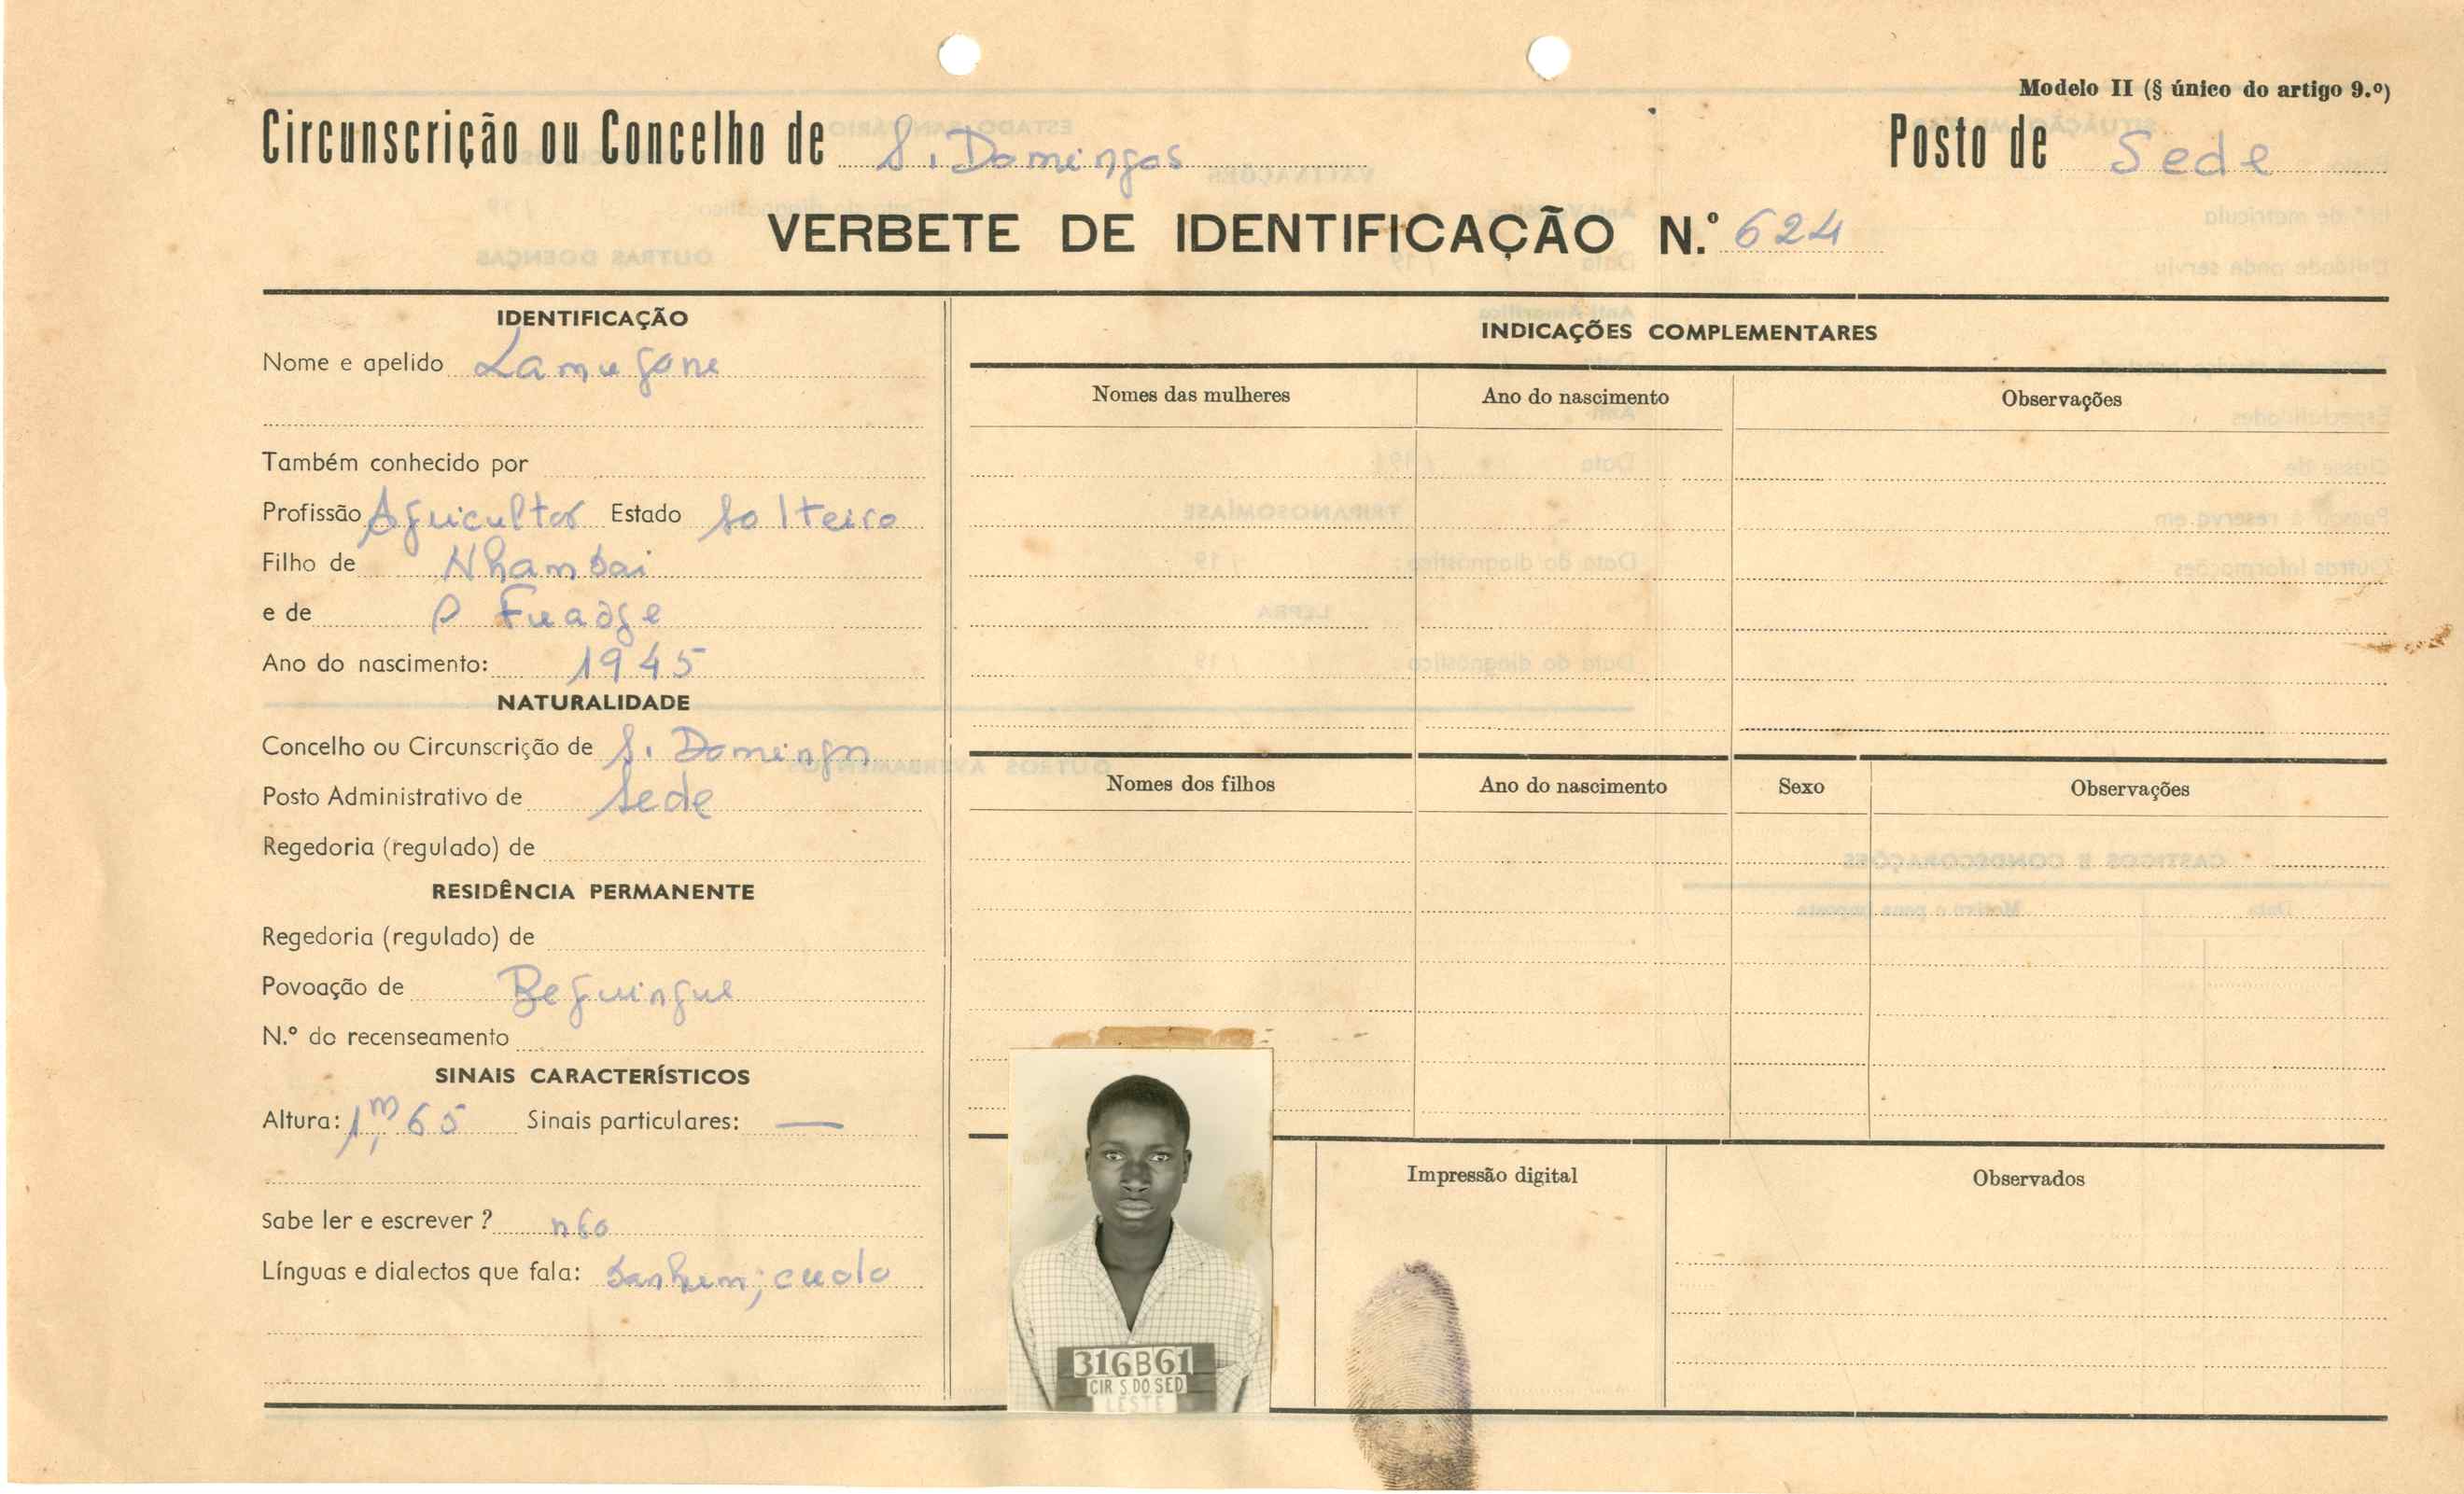 Modelo II (§ único do artigo 9.º)
Circunscrição ou Concelho de S. Domingos Posto de Sede
VERBETE DE IDENTIFICAÇÃO N.º 624
IDENTIFICAÇÃO
Nome e apelido Lamugone
Também conhecido por
Profissão Agricultor Estado Solteiro
Filho de Nhambai
e de
Ano do nascimento: 1945
NATURALIDADE
Concelho ou Circunscrição de S. Domingos
Posto Administrativo de Sede
Regedoria (regulado) de
RESIDÊNCIA PERMANENTE
Regedoria (regulado) de
Povoação de Beguingue
N.º do recenseamento
SINAIS CARACTERÍSTICOS
Altura: 1,m65 Sinais particulares: —
Sabe ler e escrever? não
Línguas e dialectos que fala:
INDICAÇÕES COMPLEMENTARES
Nomes das mulheres Ano do nascimento Observações
Nomes dos filhos Ano do nascimento Sexo Observações
Impressão digital Observados
316B61
CIR S.DO SED
LESTE